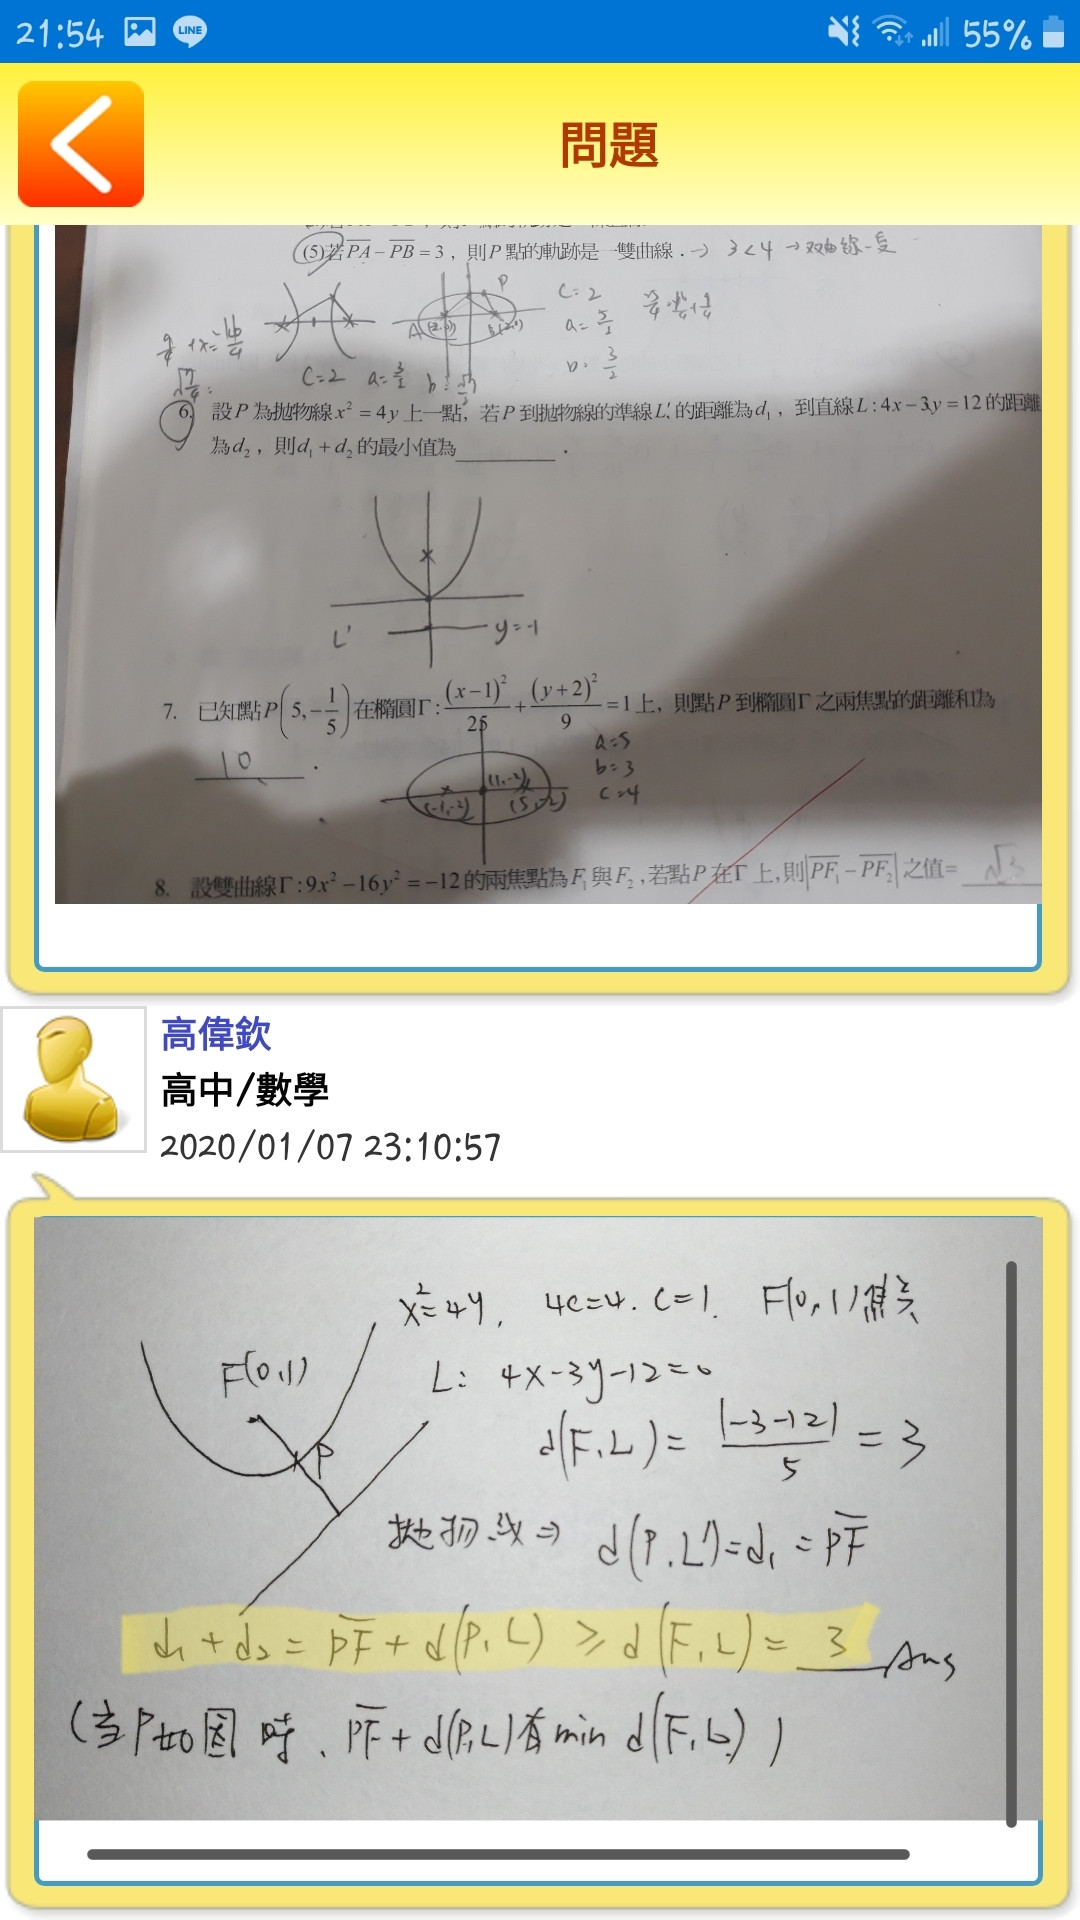 21:54 LINE 55%
問題
(5)若PA̅ − PB̅ = 3，則P點的軌跡是一雙曲線． → 3<4 → 双曲線一支
P
C=2
a=5/2
b=3/2
A(-2,0)
C=2 a=3/2 b=√7/2
6. 設P為拋物線x²=4y上一點，若P到拋物線的準線L'的距離為d₁，到直線L:4x−3y=12的距離
為d₂，則d₁+d₂的最小值為________．
L' y=-1
7. 已知點P(5,−1/5)在橢圓Γ:(x−1)²/25+(y+2)²/9=1上，則點P到橢圓Γ之兩焦點的距離和為
10．
a=5
b=3
c=4
(1,-2)
(-1,-2) (5,-2)
8. 設雙曲線Γ:9x²−16y²=−12的兩焦點為F₁與F₂，若點P在Γ上,則|PF₁̅−PF₂̅|之值=√3
高偉欽
高中/數學
2020/01/07 23:10:57
x²=4y, 4c=4. c=1. F(0,1)焦点
F(0,1)
L: 4x-3y-12=0
d(F,L)=|-3-12|/5=3
P
拋物线⇒ d(P,L')=d₁=PF̅
d₁+d₂=PF̅+d(P,L)≥d(F,L)=3 Ans
(当P如图時、PF̅+d(P,L)有min d(F,L))